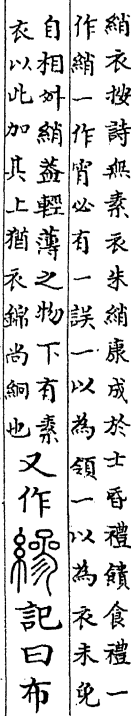 綃衣按詩無素衣朱綃康成於士昏禮饋食禮一
作綃一作宵必有一誤一以為領一以為衣未免
自相舛綃蓋輕薄之物下有素
衣以此加其上猶衣錦尚絅也
又作縿記曰布